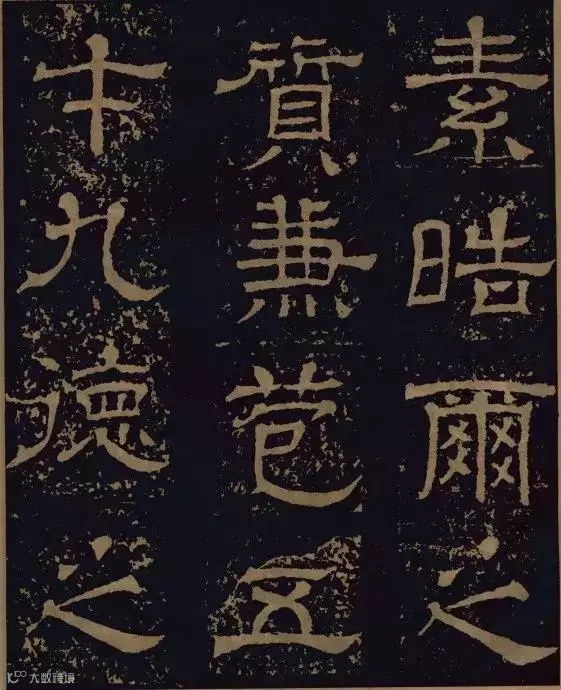 素晧爾之
質兼苞五
才九德之
大数跨境